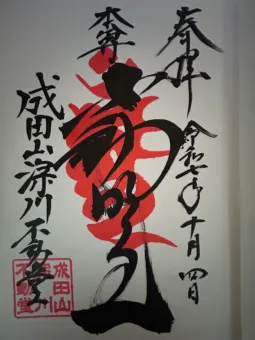 奉拝
令和七年十月四日
本尊
不動明王
成田山深川不動堂
成田山
深川
不動堂